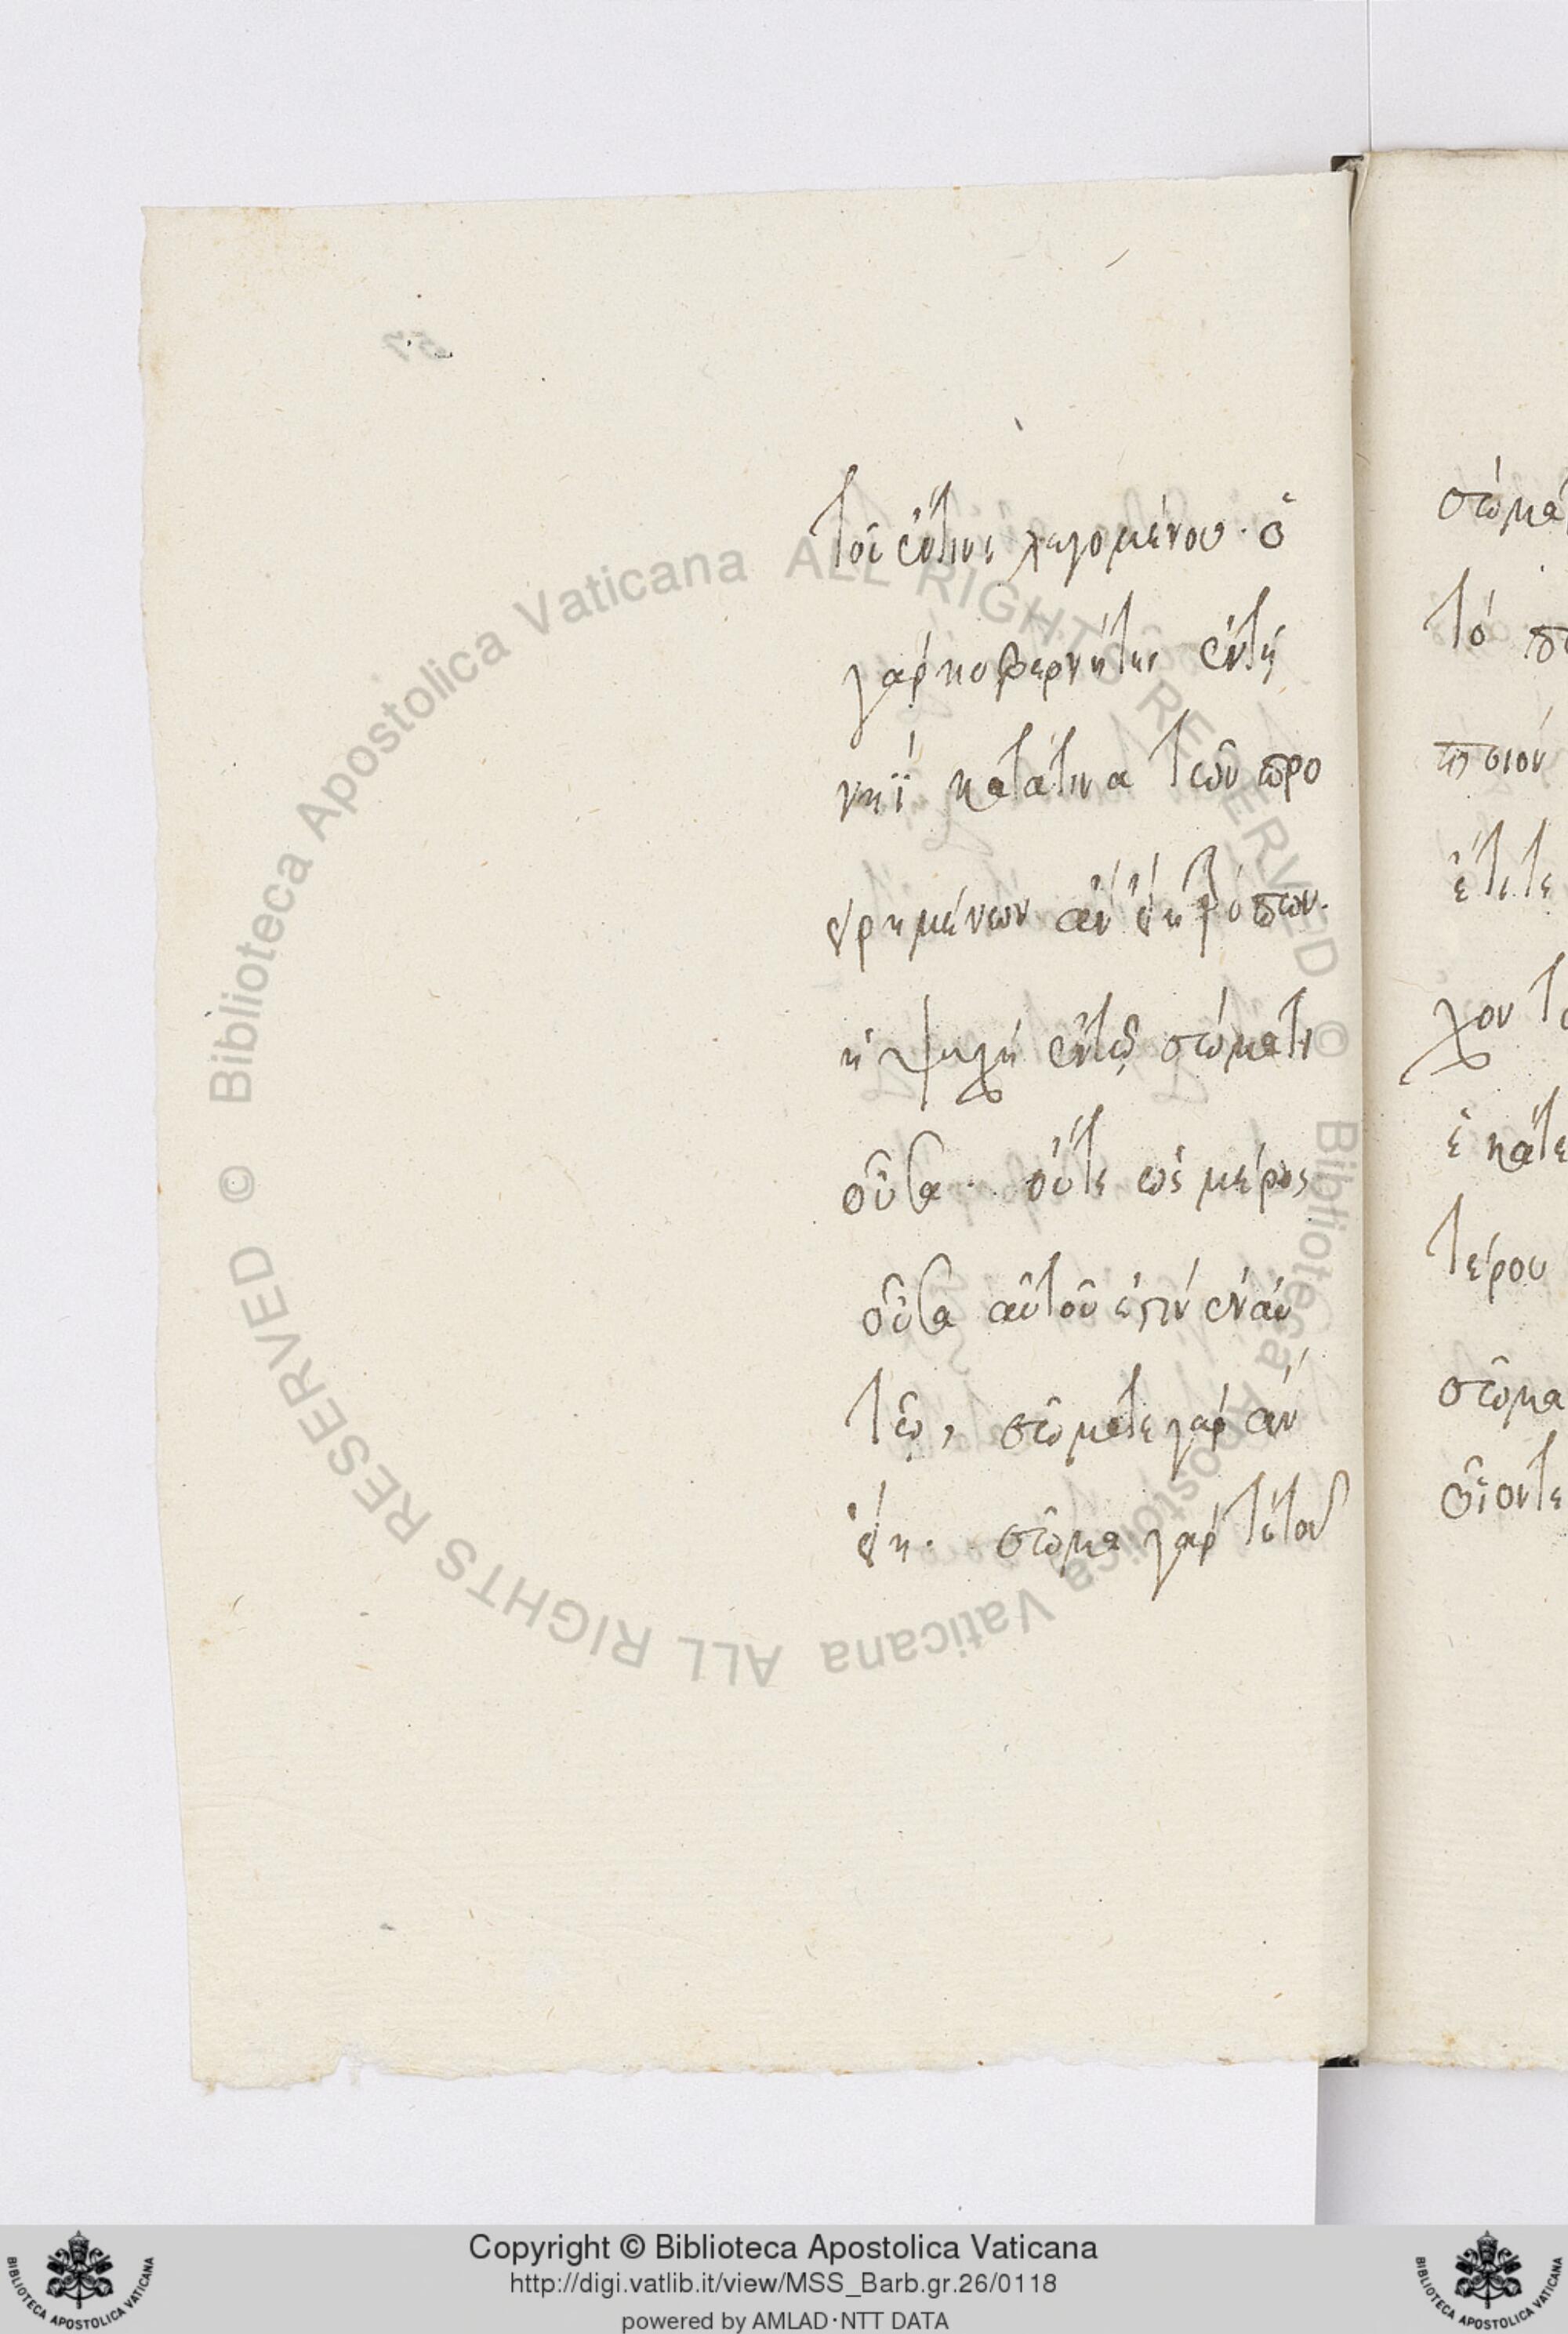 τοῦ ἔντινι λεγομένου· ὁ
γὰρ κυβερνήτης ἐντῇ
νηῒ κατάτινα τῶν προ
ειρημένων ἂν εἴη τρόπων·
ἡ ψυχὴ ἐντῷ σώματι
οὖσα· οὔτε ὡς μέρος
οὖσα αὐτοῦ ἐστὶν ἐναὐ
τῷ, σώματε γὰρ ἂν
εἴη· σῶμα γὰρ τὲ τοῦ
σώμα
τὸ
ἔτι τε
χον
ἑκάτε
τέρου
σῶμα
Biblioteca Apostolica Vaticana ALL RIGHTS RESERVED ©
Biblioteca Apostolica Vaticana ALL RIGHTS RESERVED ©
Copyright © Biblioteca Apostolica Vaticana
http://digi.vatlib.it/view/MSS_Barb.gr.26/0118
powered by AMLAD·NTT DATA
BIBLIOTECA APOSTOLICA VATICANA
BIBLIOTECA APOSTOLICA VATICANA